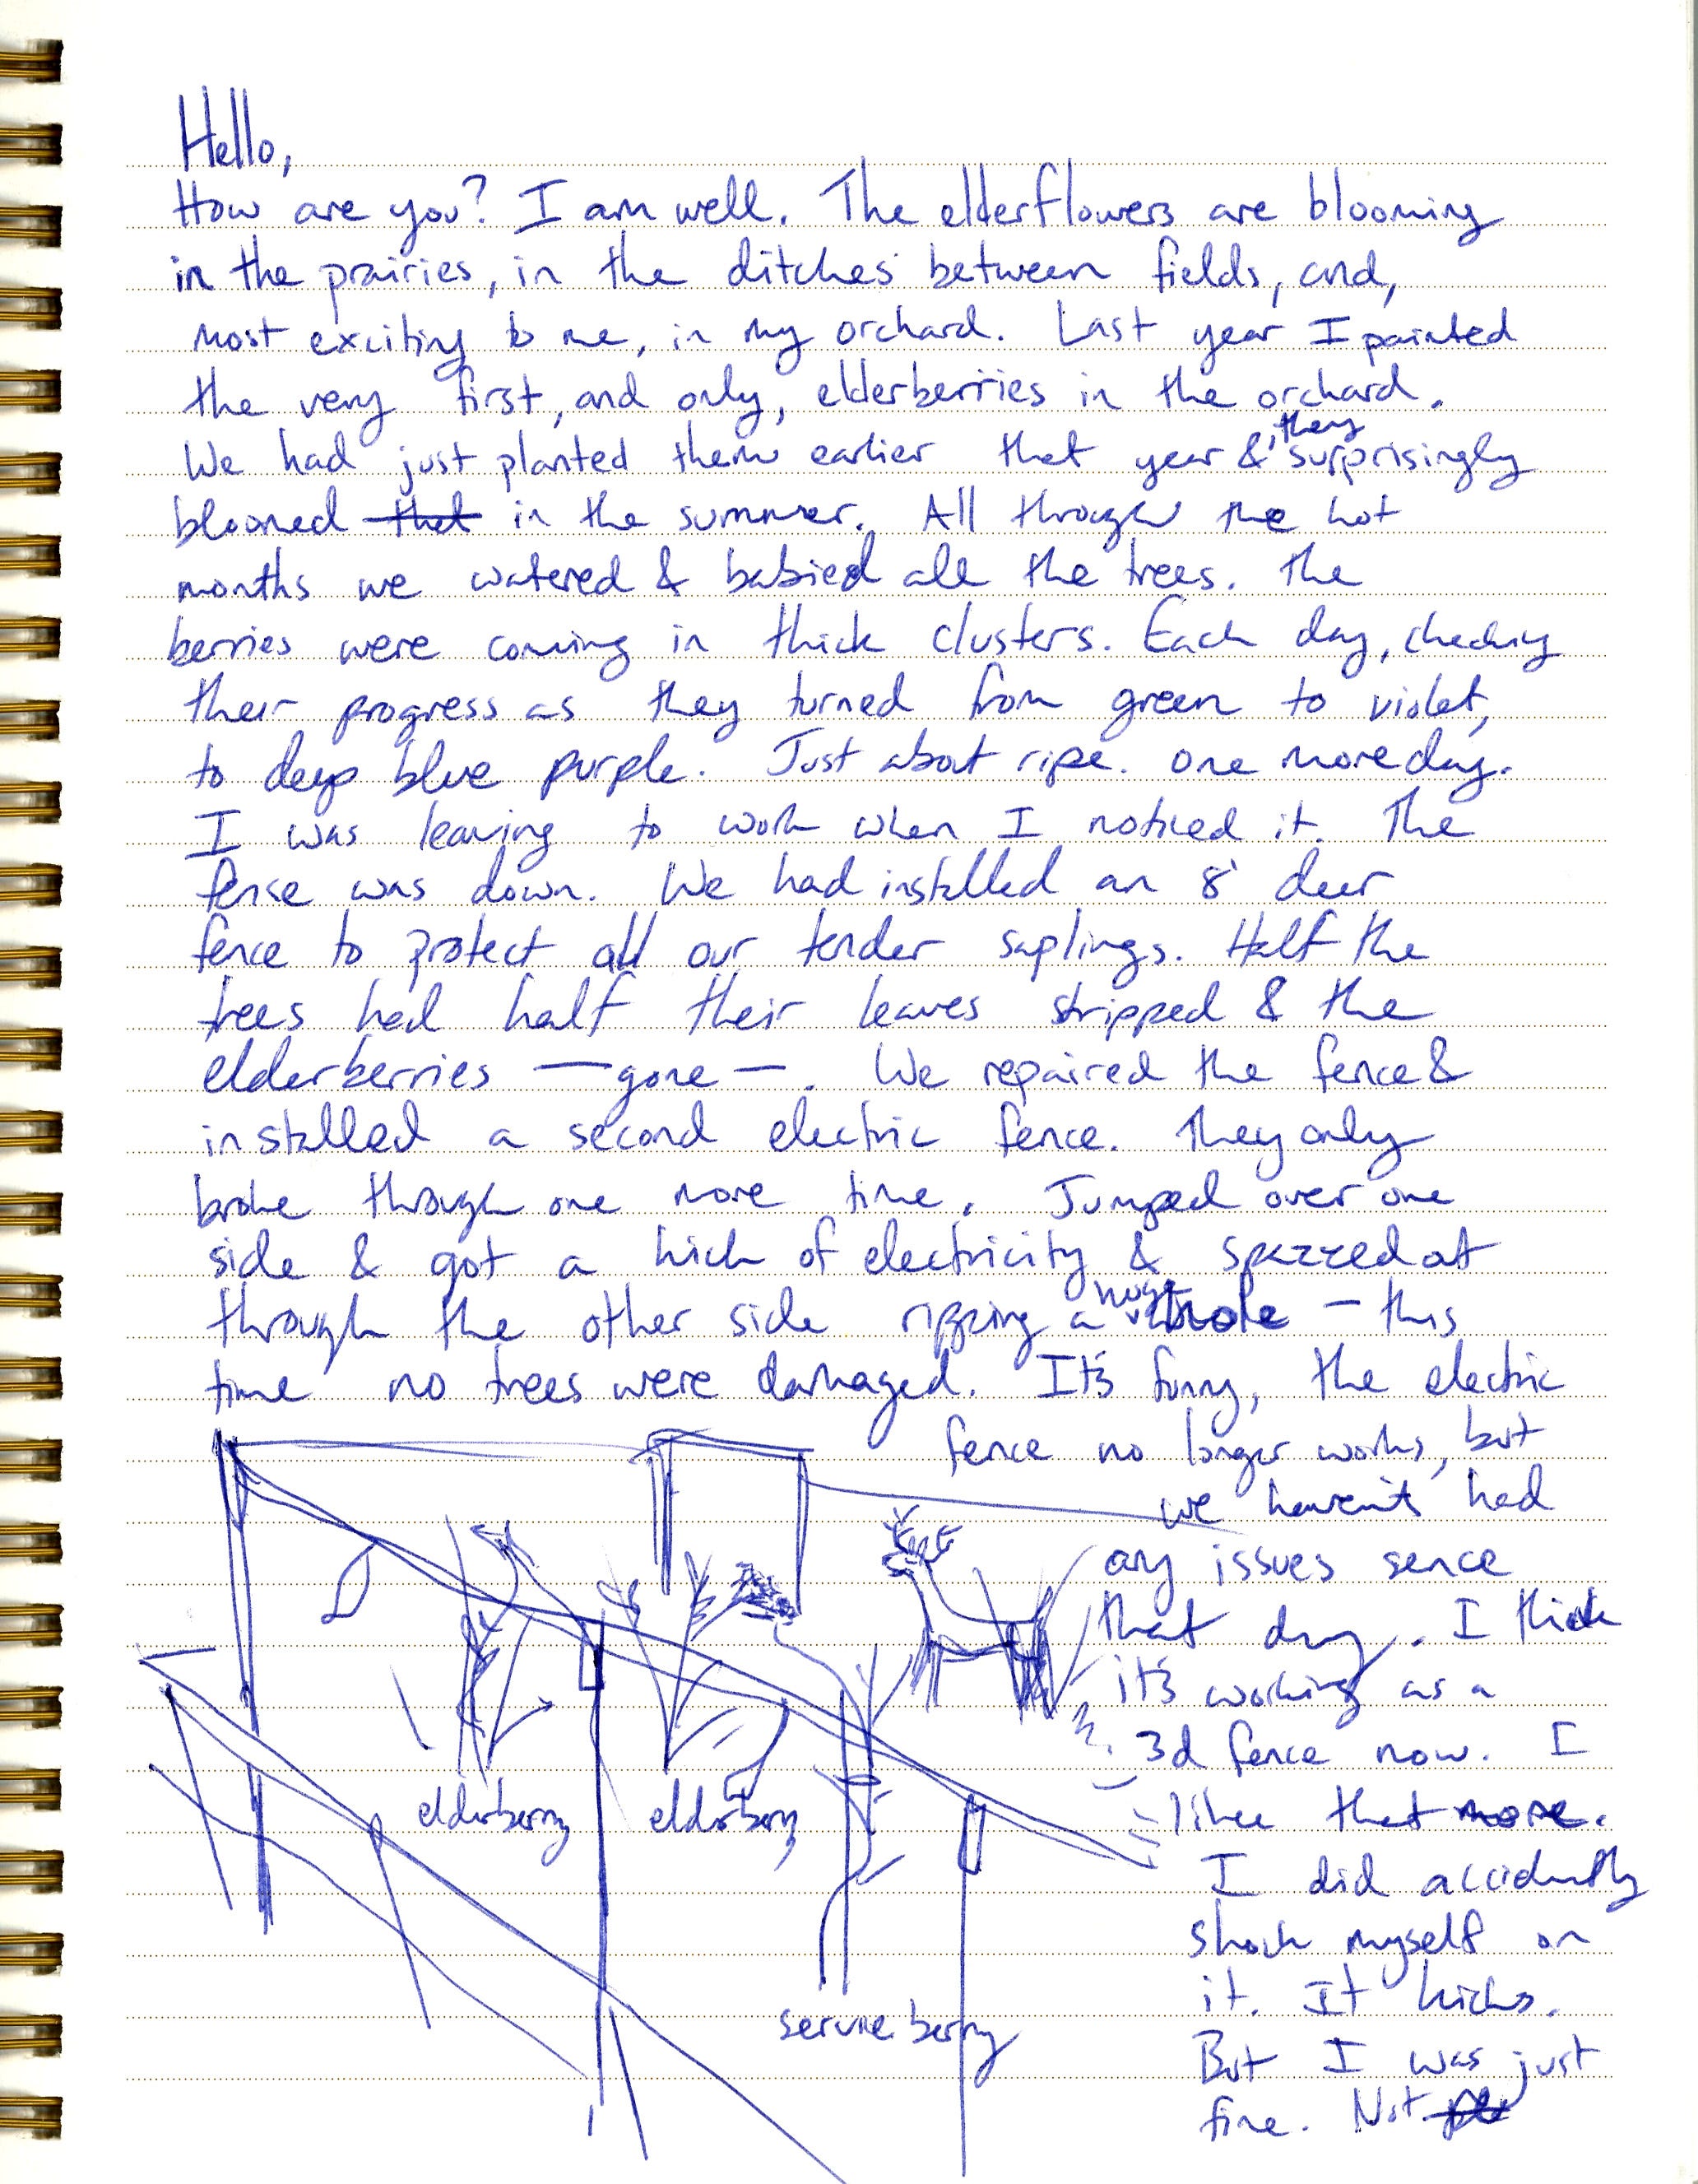 Hello,
How are you? I am well. The elderflowers are blooming
in the prairies, in the ditches between fields, and,
most exciting to me, in my orchard. Last year I painted
the very first, and only, elderberries in the orchard.
We had just planted them earlier that year &, they surprisingly
bloomed that in the summer. All through the hot
months we watered & babied all the trees. The
berries were coming in thick clusters. Each day, checking
their progress as they turned from green to violet,
to deep blue purple. Just about ripe. One more day.
I was leaving to work when I noticed it. The
fense was down. We had installed an 8' deer
fence to protect all our tender saplings. Half the
trees had half their leaves stripped & the
elderberries — gone —. We repaired the fence &
installed a second electric fence. They only
broke through one more time. Jumped over one
side & got a kick of electricity & spazzed out
through the other side ripping a huge hole – this
time no trees were damaged. It's funny, the electric
fence no longer works, but
we haven't had
any issues sence
that day. I think
it's working as a
3d fence now. I
like that more.
I did accidently
shock myself on
it. It kicks.
But I was just
fine. Not
elderberry
elderberry
service berry